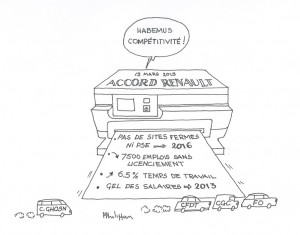 HABEMUS
COMPÉTITIVITÉ !
13 MARS 2013
ACCORD RENAULT
PAS DE SITES FERMES
NI PSE → 2016
• ↘ 7500 EMPLOIS SANS
LICENCIEMENT
• ↗ 6.5% TEMPS DE TRAVAIL
• GEL DES SALAIRES ⇒ 2013
C. GHOSN
CFDT
CGC
FO